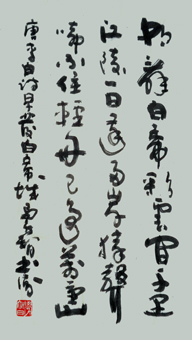 朝辭白帝彩雲間千里
江陵一日還兩岸猿聲
啼不住輕舟已過萬重山
唐李白詩早發白帝城